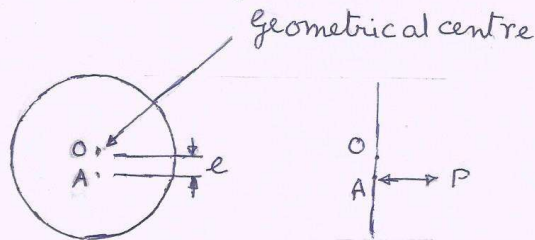 Geometrical centre
O
A
e
O
A
P